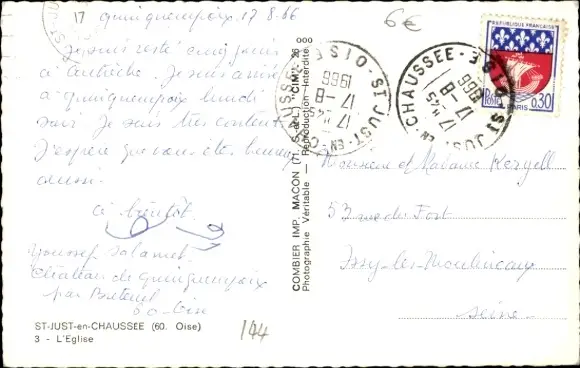 17 quinquempoix 17 8 66
Je suis resté cinq jours
à autrèche Je suis arrivé
à quinquempoix lundi
soir Je suis très content
J'espère que vous êtes heureux
aussi
à bientôt
Youssef
Château de quinquempoix
par Breteuil
60 Oise
ST-JUST-en-CHAUSSEE (60. Oise)
3 - L'Eglise
144
6€
COMBIER IMP. MACON (71, S.-&-L.) "CIM"
Photographie Véritable - Reproduction Interdite
ST JUST EN CHAUSSEE OISE
17 H 45
17-8
1966
ST JUST EN CHAUSSEE OISE
17 H 45
17-8
1966
REPUBLIQUE FRANÇAISE
POSTES
0,30
PARIS
Monsieur et Madame Kergell
53 rue du Fort
Issy-les-Moulineaux
Seine